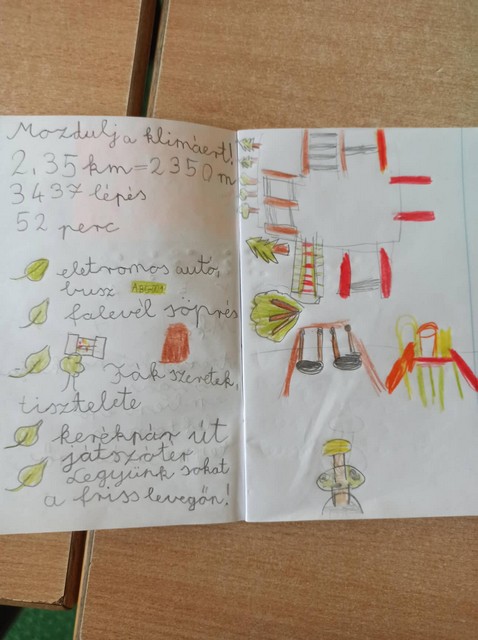 Mozdulj a klímáért!
2,35 km = 2350 m
3437 lépés
52 perc
eletromos autó,
busz
falevél söprés
Fák szeretek,
tisztelete
kerékpár út
játszótér
Legyünk sokat
a friss levegőn!